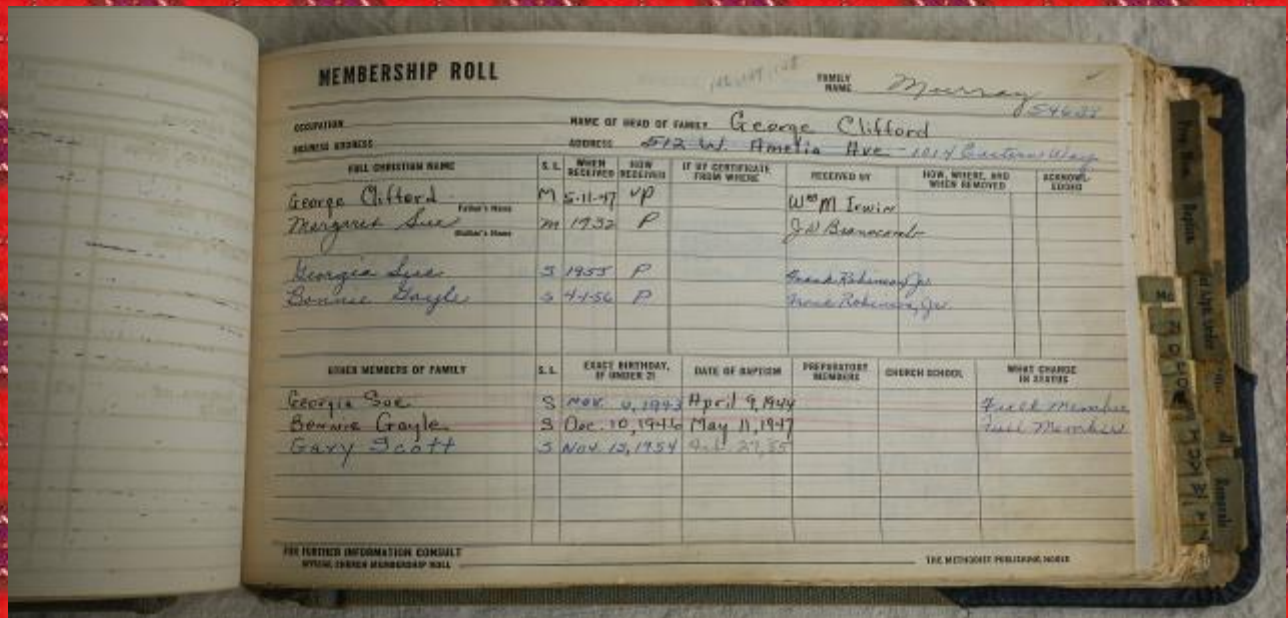 MEMBERSHIP ROLL
FAMILY NAME Murray
OCCUPATION NAME OF HEAD OF FAMILY George Clifford
BUSINESS ADDRESS ADDRESS 512 W. Amelia Ave 1014 Eastern Way
FULL CHRISTIAN NAME S. L. WHEN RECEIVED HOW RECEIVED IF BY CERTIFICATE FROM WHERE RECEIVED BY HOW, WHERE, AND WHEN REMOVED ACKNOWLEDGED
George Clifford M 5-11-47 VP Wm M Irwin
Father's Name
Margaret Sue m 1932 P
Mother's Name
Georgia Sue S 1955 P Frank Robinson, Jr.
Bonnie Gayle S 4-1-56 P Frank Robinson, Jr.
OTHER MEMBERS OF FAMILY S. L. EXACT BIRTHDAY, IF UNDER 21 DATE OF BAPTISM PREPARATORY MEMBERS CHURCH SCHOOL WHAT CHANGE IN STATUS
Georgia Sue S 1943 April 9, 1944 Full Member
Bonnie Gayle S Dec. 10, 1946 May 11, 1947 Full Member
Gary Scott S Nov. 1954 Feb. 27, 55
FOR FURTHER INFORMATION CONSULT
OFFICIAL CHURCH MEMBERSHIP ROLL
THE METHODIST PUBLISHING HOUSE